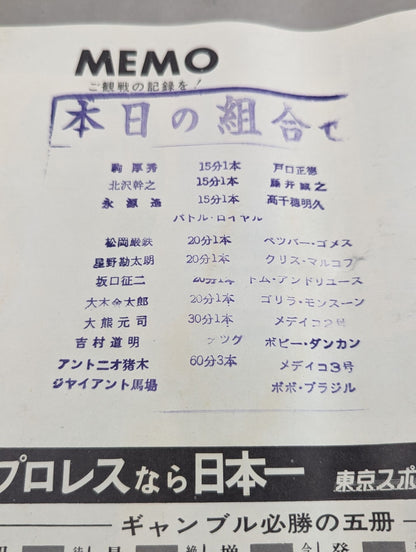 MEMO
ご観戦の記録を!
本日の組合せ
駒厚秀 15分1本 戸口正徳
北沢幹之 15分1本 藤井誠之
永源遙 15分1本 高千穂明久
バトル・ロイヤル
松岡巌鉄 20分1本 ペツパー・ゴメス
星野勘太郎 20分1本 クリス・マルコフ
坂口征二 20分1本 トム・アンドリユース
大木金太郎 20分1本 ゴリラ・モンスーン
大熊元司 30分1本 メデイコ2号
吉村道明 タツグ ボビー・ダンカン
アントニオ猪木 60分3本 メデイコ3号
ジヤイアント馬場 ボボ・ブラジル
プロレスなら日本一 東京スポ
ギャンブル必勝の五冊